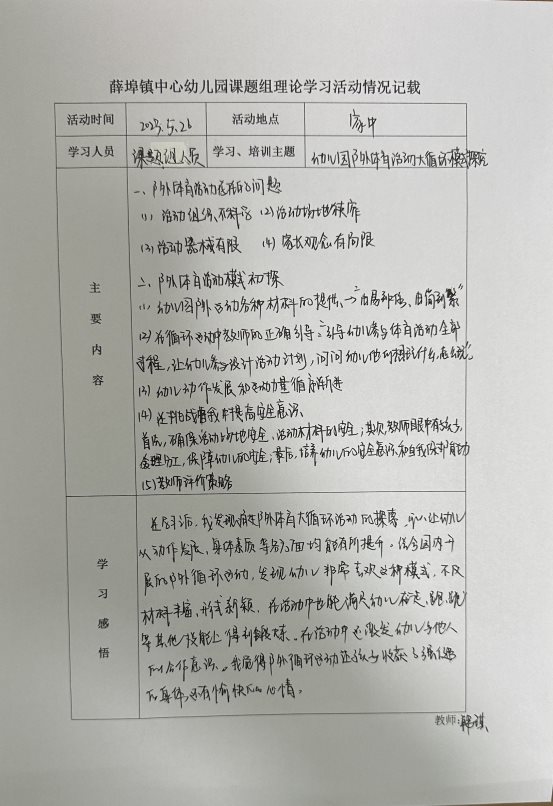 薛埠镇中心幼儿园课题组理论学习活动情况记载
活动时间 2023.5.26 活动地点 家中
学习人员 课题组人员 学习、培训主题 幼儿园户外体育活动大循环模式探究
主要内容
一、户外体育活动存在的问题
(1) 活动组织不科学 (2) 活动场地缺库
(3) 活动器械有限 (4) 家长观念有局限
二、户外体育活动模式初探
(1) 幼儿园户外运动各种材料的提供、→"由易到难、由简到繁"
(2) 在循环运动中教师的正确引导:"引导幼儿参与体育活动全部
过程,让幼儿参与设计活动计划,问问幼儿他们想玩什么,怎么玩"
(3) 幼儿动作发展和运动量循序渐进
(4) 在挑战自我中提高安全意识。
首先,确保活动场地安全、活动材料的安全;其次,教师眼中有孩子,
合理分工,保障幼儿的安全;最后,培养幼儿的安全意识和自我保护能力
(5) 教师评价策略
学习感悟
在学习后,我发现通过户外体育大循环活动的探索,可以让幼儿
从动作发展、身体素质等各方面均能有所提升。结合园内开
展的户外循环运动,发现幼儿非常喜欢这种模式,不仅
材料丰富,形式新颖,在活动中也能满足幼儿在走、跑、跳
等其他技能上得到锻炼。在活动中还激发幼儿与他人
的合作意识。我觉得户外循环运动让孩子收获了强健
的身体,还有愉快的心情。
教师: